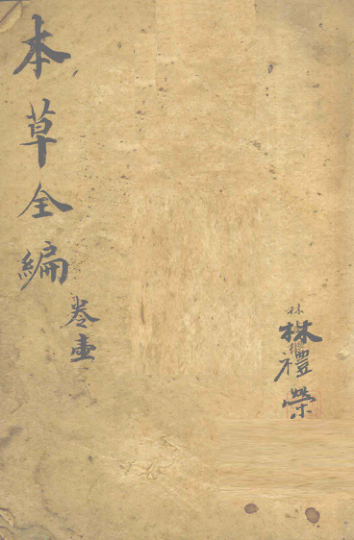 本草全編
卷壶
林
林禮榮